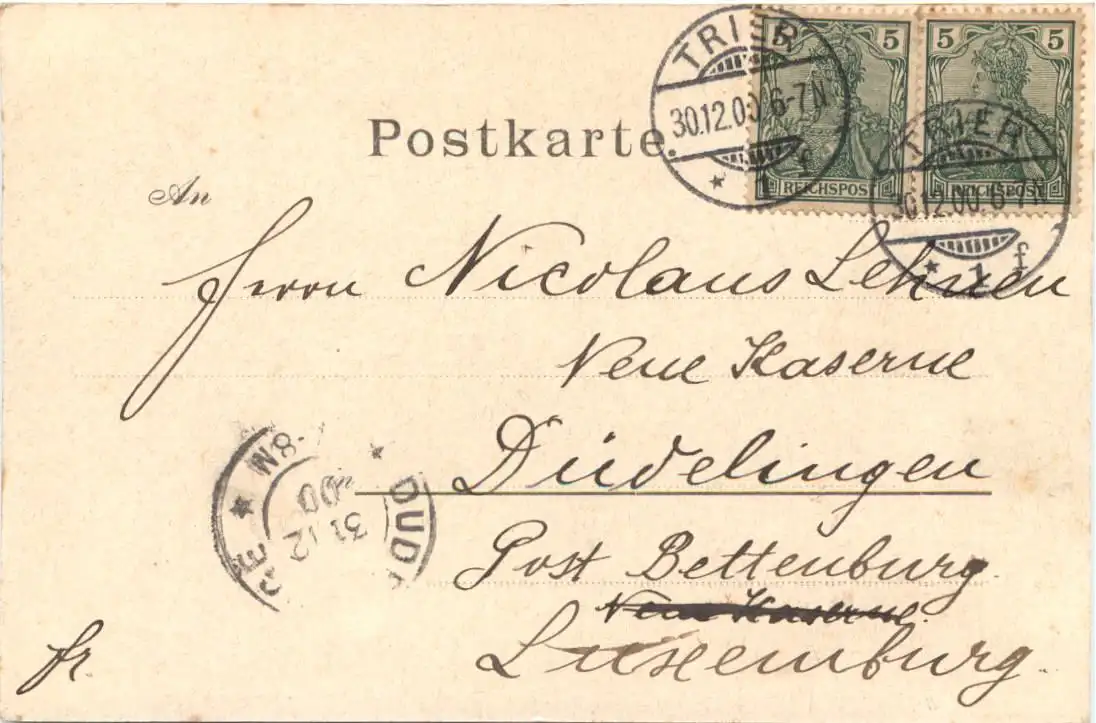 5 5
REICHSPOST REICHSPOST
TRIER
30.12.00.6-7N
* 1 f
TRIER
30.12.00.6-7N
* 1 f
Postkarte.
An
Herrn Nicolaus Lehnen
Neue Kaserne
Düdelingen
Post Bettenburg.
Neue Kaserne.
Luxemburg.
fr.
DUD
31 12
00
-8M
GE